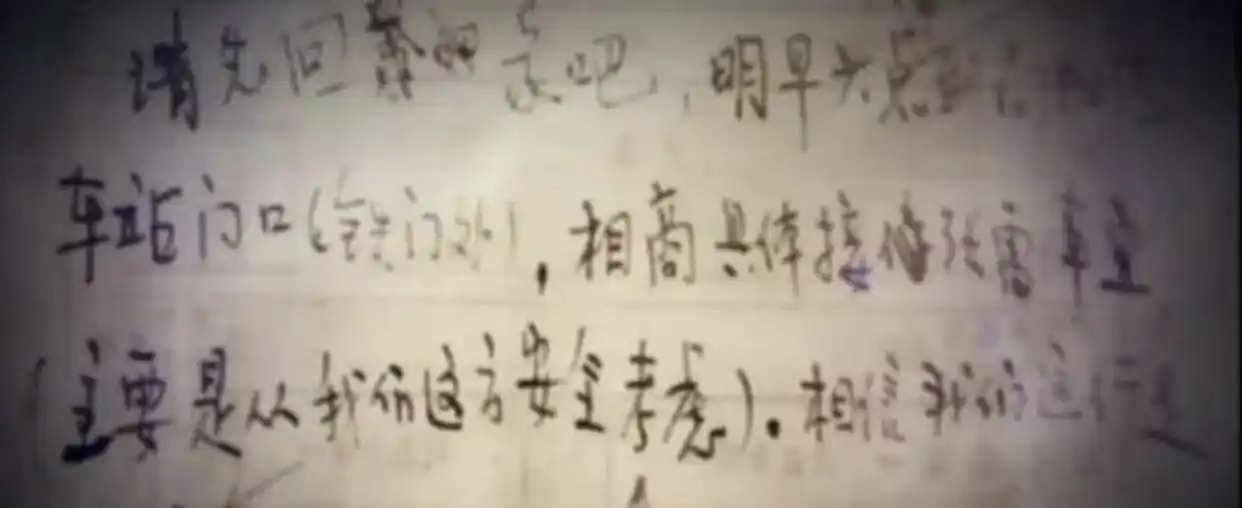 请先回 吧,明早六点
车站门口(铁门外),相商具体接 张 事宜
(主要是从我们这方安全考虑)。相信我们这行是